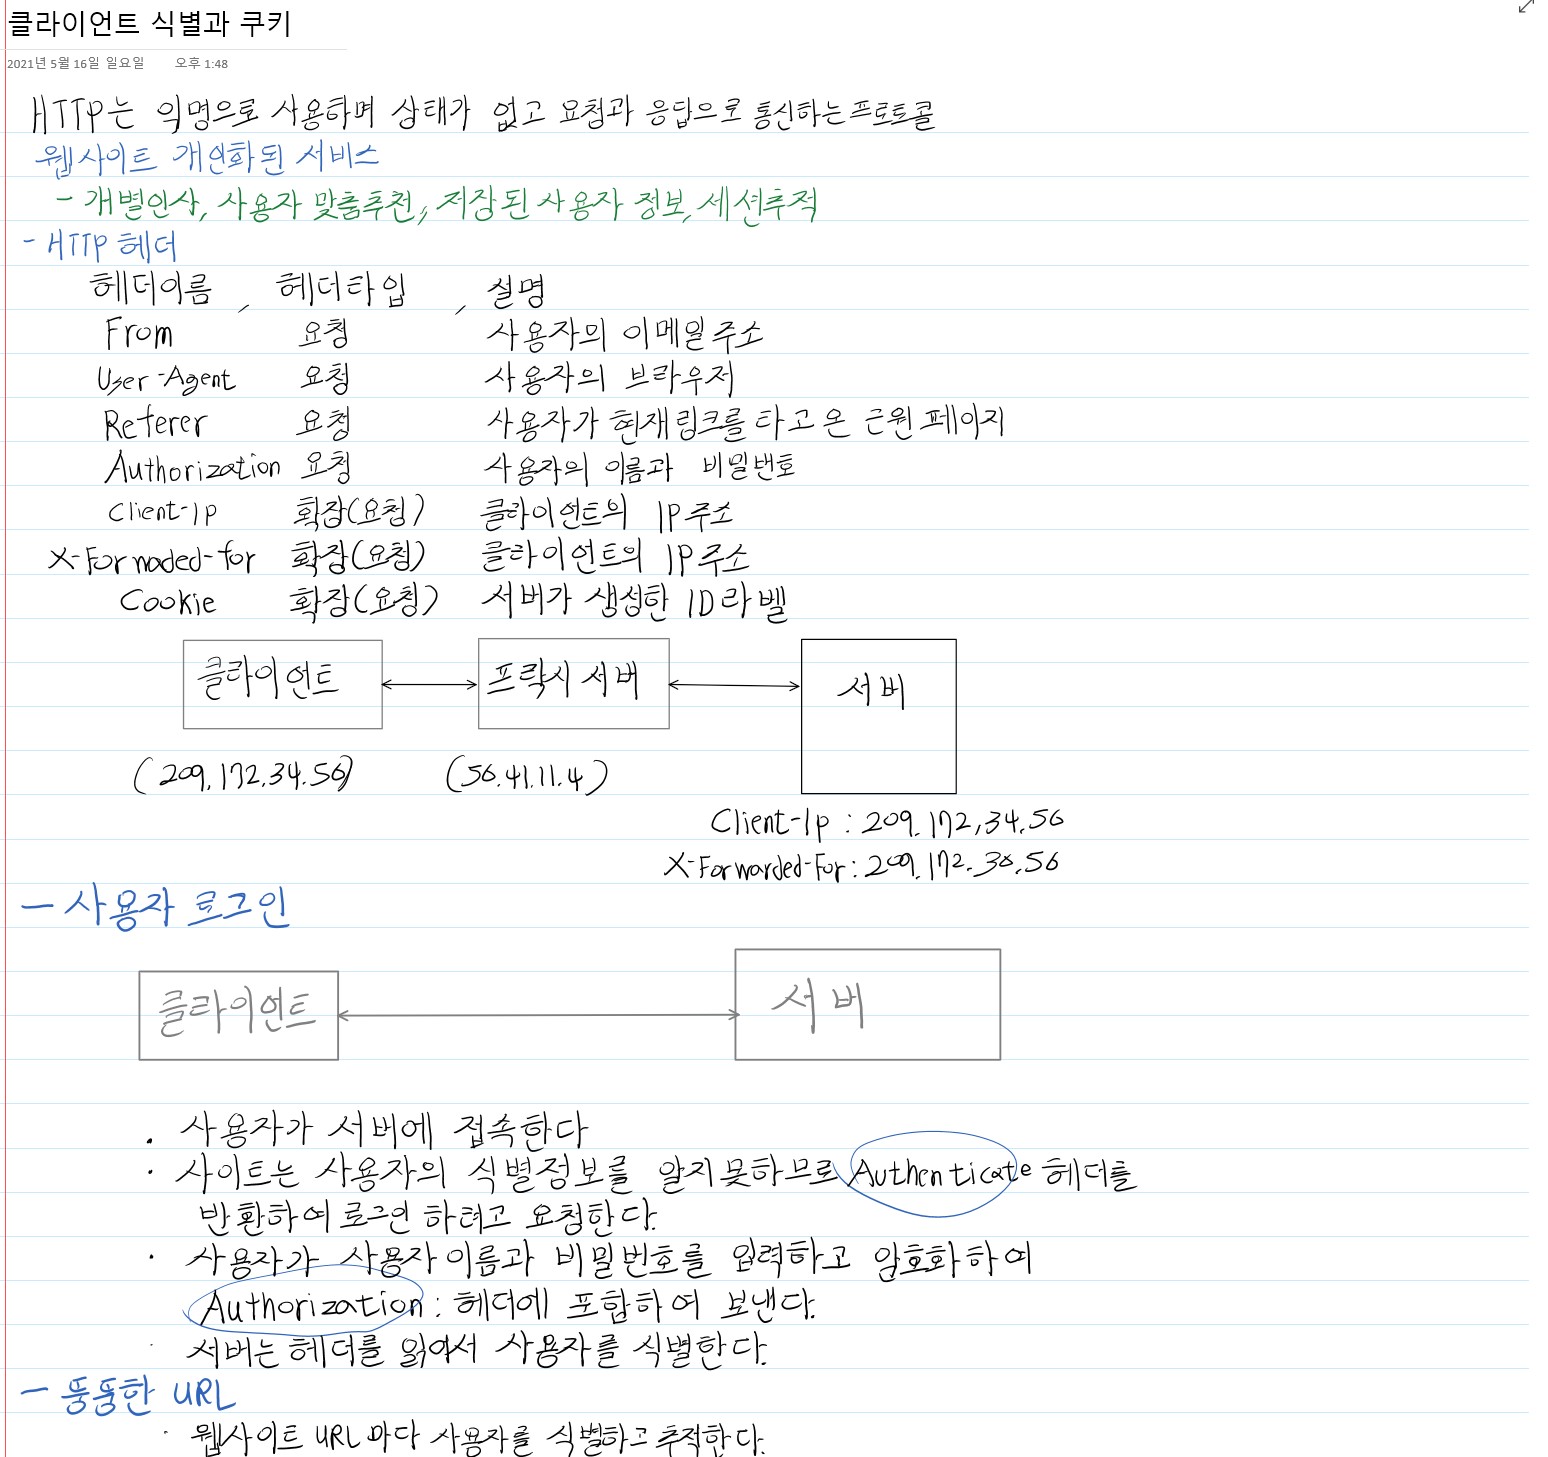 클라이언트 식별과 쿠키
2021년 5월 16일 일요일 오후 1:48
HTTP는 익명으로 사용하며 상태가 없고 요청과 응답으로 통신하는 프로토콜
웹사이트 개인화된 서비스
- 개별인사, 사용자 맞춤추천, 저장된 사용자 정보, 세션추적
- HTTP 헤더
헤더이름, 헤더타입, 설명
From 요청 사용자의 이메일주소
User-Agent 요청 사용자의 브라우저
Referer 요청 사용자가 현재링크를 타고 온 근원페이지
Authorization 요청 사용자의 이름과 비밀번호
Client-Ip 확장(요청) 클라이언트의 IP주소
X-Forwaded-for 확장(요청) 클라이언트의 IP주소
Cookie 확장(요청) 서버가 생성한 ID라벨
클라이언트 프락시 서버 서버
(209.172.34.56) (56.41.11.4)
Client-Ip : 209.172,34.56
X-Forwarded-For: 209.172.36.56
- 사용자 로그인
클라이언트 서버
· 사용자가 서버에 접속한다
· 사이트는 사용자의 식별정보를 알지못하므로 Authenticate 헤더를
반환하여 로그인 하려고 요청한다.
· 사용자가 사용자이름과 비밀번호를 입력하고 암호화하여
Authorization: 헤더에 포함하여 보낸다.
· 서버는 헤더를 읽어서 사용자를 식별한다.
- 뚱뚱한 URL
· 웹사이트 URL마다 사용자를 식별하고 추적한다.